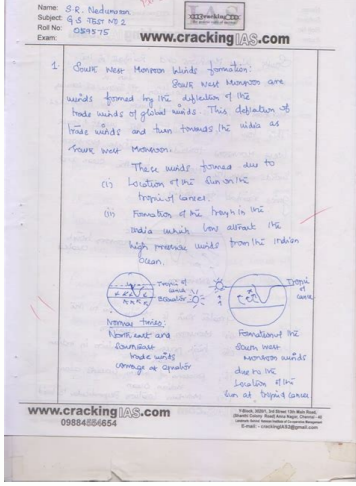 Name: S.R. Nedumaran
Subject: G.S TEST NO 2
Roll No: 059575
Exam:
IAS
cracking IAS.com
www.crackingIAS.com
1. South West Monsoon Winds formation:
South West Monsoon are
winds formed by the deflection of the
trade winds of global winds. This deflation of
trade winds and turn towards the india as
South West Monsoon.
These winds formed due to
(i) Location of the Sun on the
tropic of Cancer.
(ii) Formation of the trough in the
india which low attract the
high pressure winds from the Indian
ocean.
Tropic of
cancer
Equator
Tropic
of
cancer
Normal times:
North east and
South east
trade winds
converge at equator
Formation of the
South West
Monsoon winds
due to the
Location of the
Sun at tropic cancer.
www.crackingIAS.com
09884554654
Shanthi Colony Road) Anna Nagar, Chennai - 40
E-mail: - crackingIAS3@gmail.com